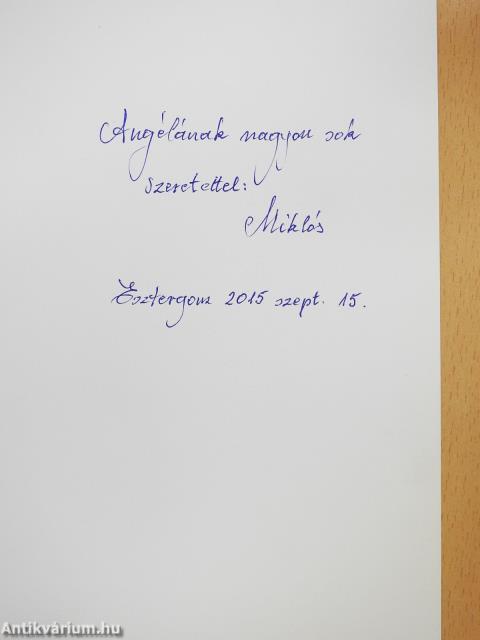 Angélának nagyon sok
szeretettel:
Miklós
Esztergom 2015 szept. 15.
Antikvárium.hu